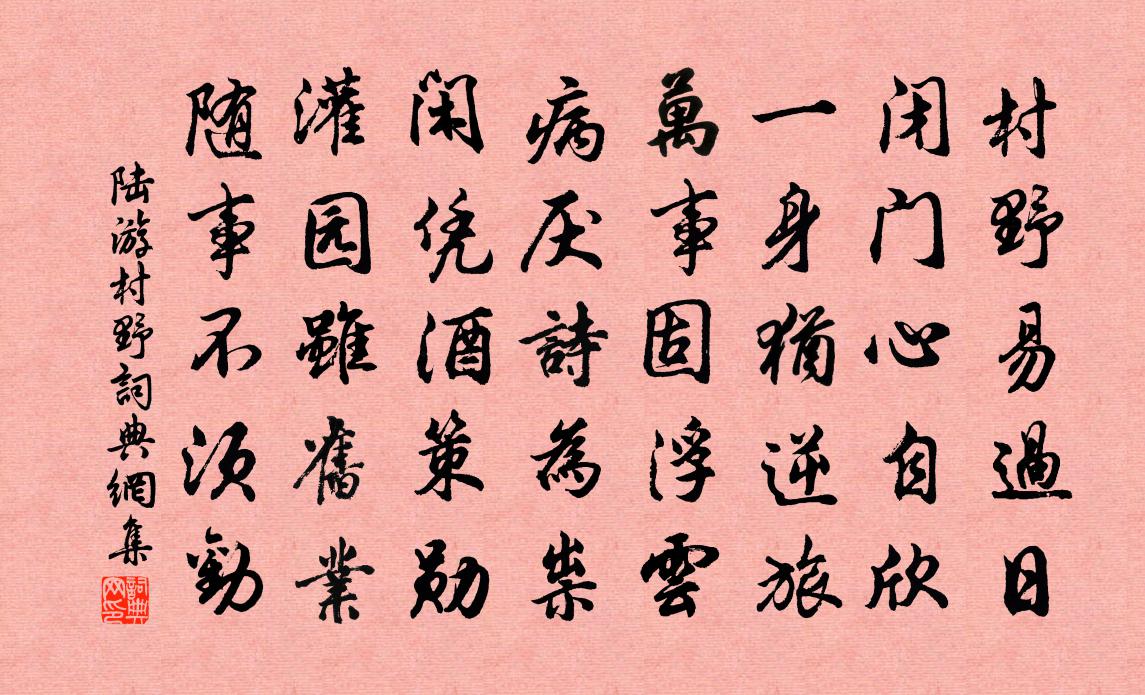 村野易過日
闭门心自欣
一身猶逆旅
萬事固浮雲
病厌詩為祟
闲凭酒策勋
灌园雖舊業
随事不须勤
陆游村野詞典網集
詞典网印